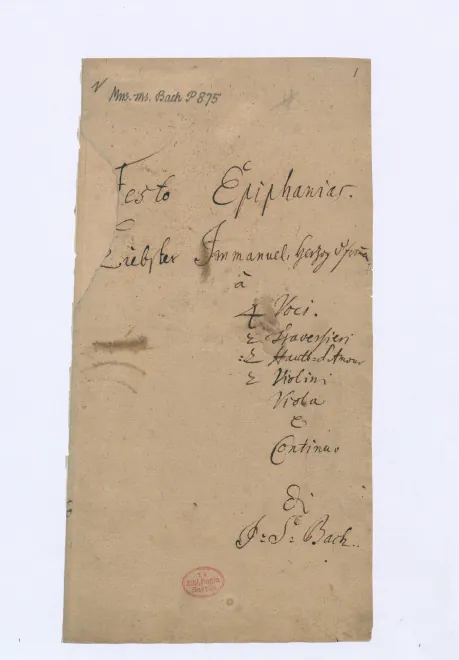 1
Mus. ms. Bach P 875
Festo Epiphanias.
Liebster Immanuel, Herzog d. From̄en
à
4 Voci.
2 Traversieri
2 Hautb: d'Amour
2 Violini
Viola
e
Continuo
di
J: S: Bach.
Ex
Bibl. Regia
Berolin.